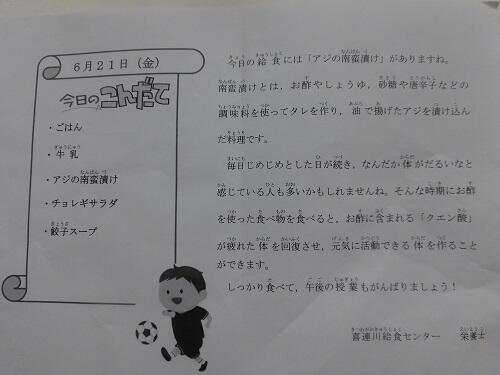 6月21日(金)
今日のこんだて
・ごはん
・牛乳
・アジの南蛮漬け
・チョレギサラダ
・餃子スープ
今日の給食には「アジの南蛮漬け」がありますね。
南蛮漬けとは、お酢やしょうゆ,砂糖や唐辛子などの
調味料を使ってタレを作り,油で揚げたアジを漬け込ん
だ料理です。
毎日じめじめとした日が続き,なんだか体がだるいなと
感じている人も多いかもしれませんね。そんな時期にお酢
を使った食べ物を食べると、お酢に含まれる「クエン酸」
が疲れた体を回復させ,元気に活動できる体を作ること
ができます。
しっかり食べて,午後の授業もがんばりましょう!
喜連川給食センター 栄養士